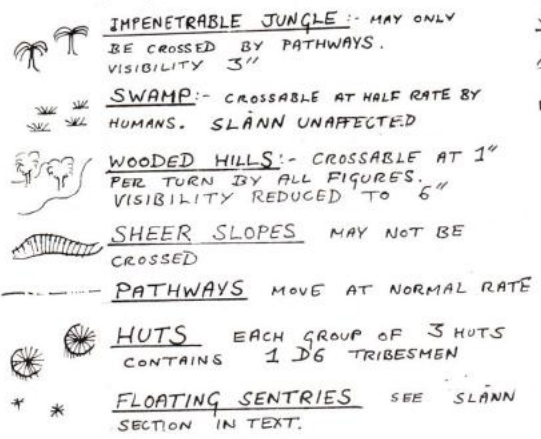 IMPENETRABLE JUNGLE:- MAY ONLY
BE CROSSED BY PATHWAYS.
VISIBILITY 3"
SWAMP:- CROSSABLE AT HALF RATE BY
HUMANS. SLÄNN UNAFFECTED
WOODED HILLS:- CROSSABLE AT 1"
PER TURN BY ALL FIGURES.
VISIBILITY REDUCED TO 6"
SHEER SLOPES MAY NOT BE
CROSSED
PATHWAYS MOVE AT NORMAL RATE
HUTS EACH GROUP OF 3 HUTS
CONTAINS 1 D6 TRIBESMEN
FLOATING SENTRIES SEE SLÄNN
SECTION IN TEXT.